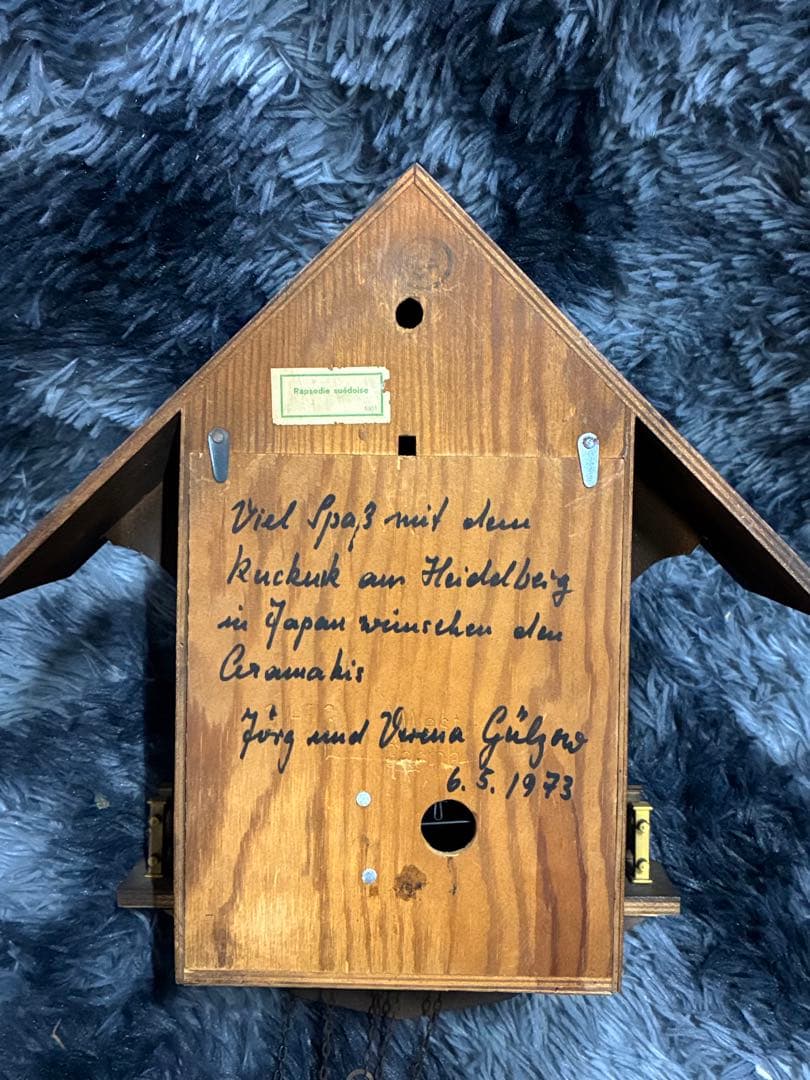 Rapsodie suédoise
Viel Spaß mit dem
Kuckuck aus Heidelberg
in Japan wünschen den
Aramakis
Jörg und Verena Gülzow
6. 5. 1973